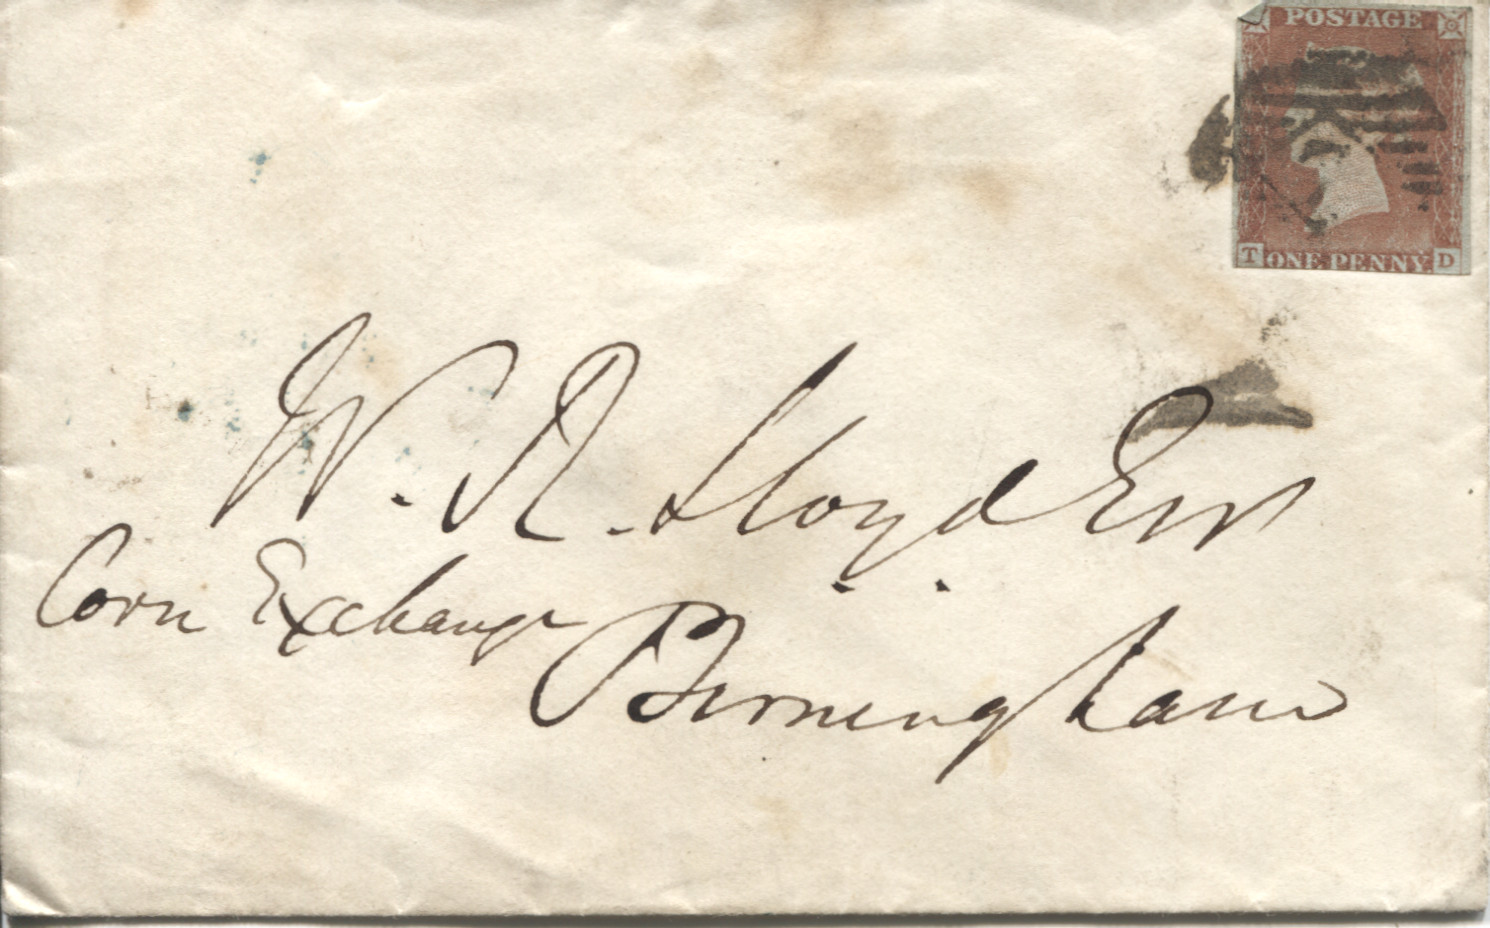 POSTAGE
T ONE PENNY. D
W. R. Lloyd Esqr
Corn Exchange
Birmingham